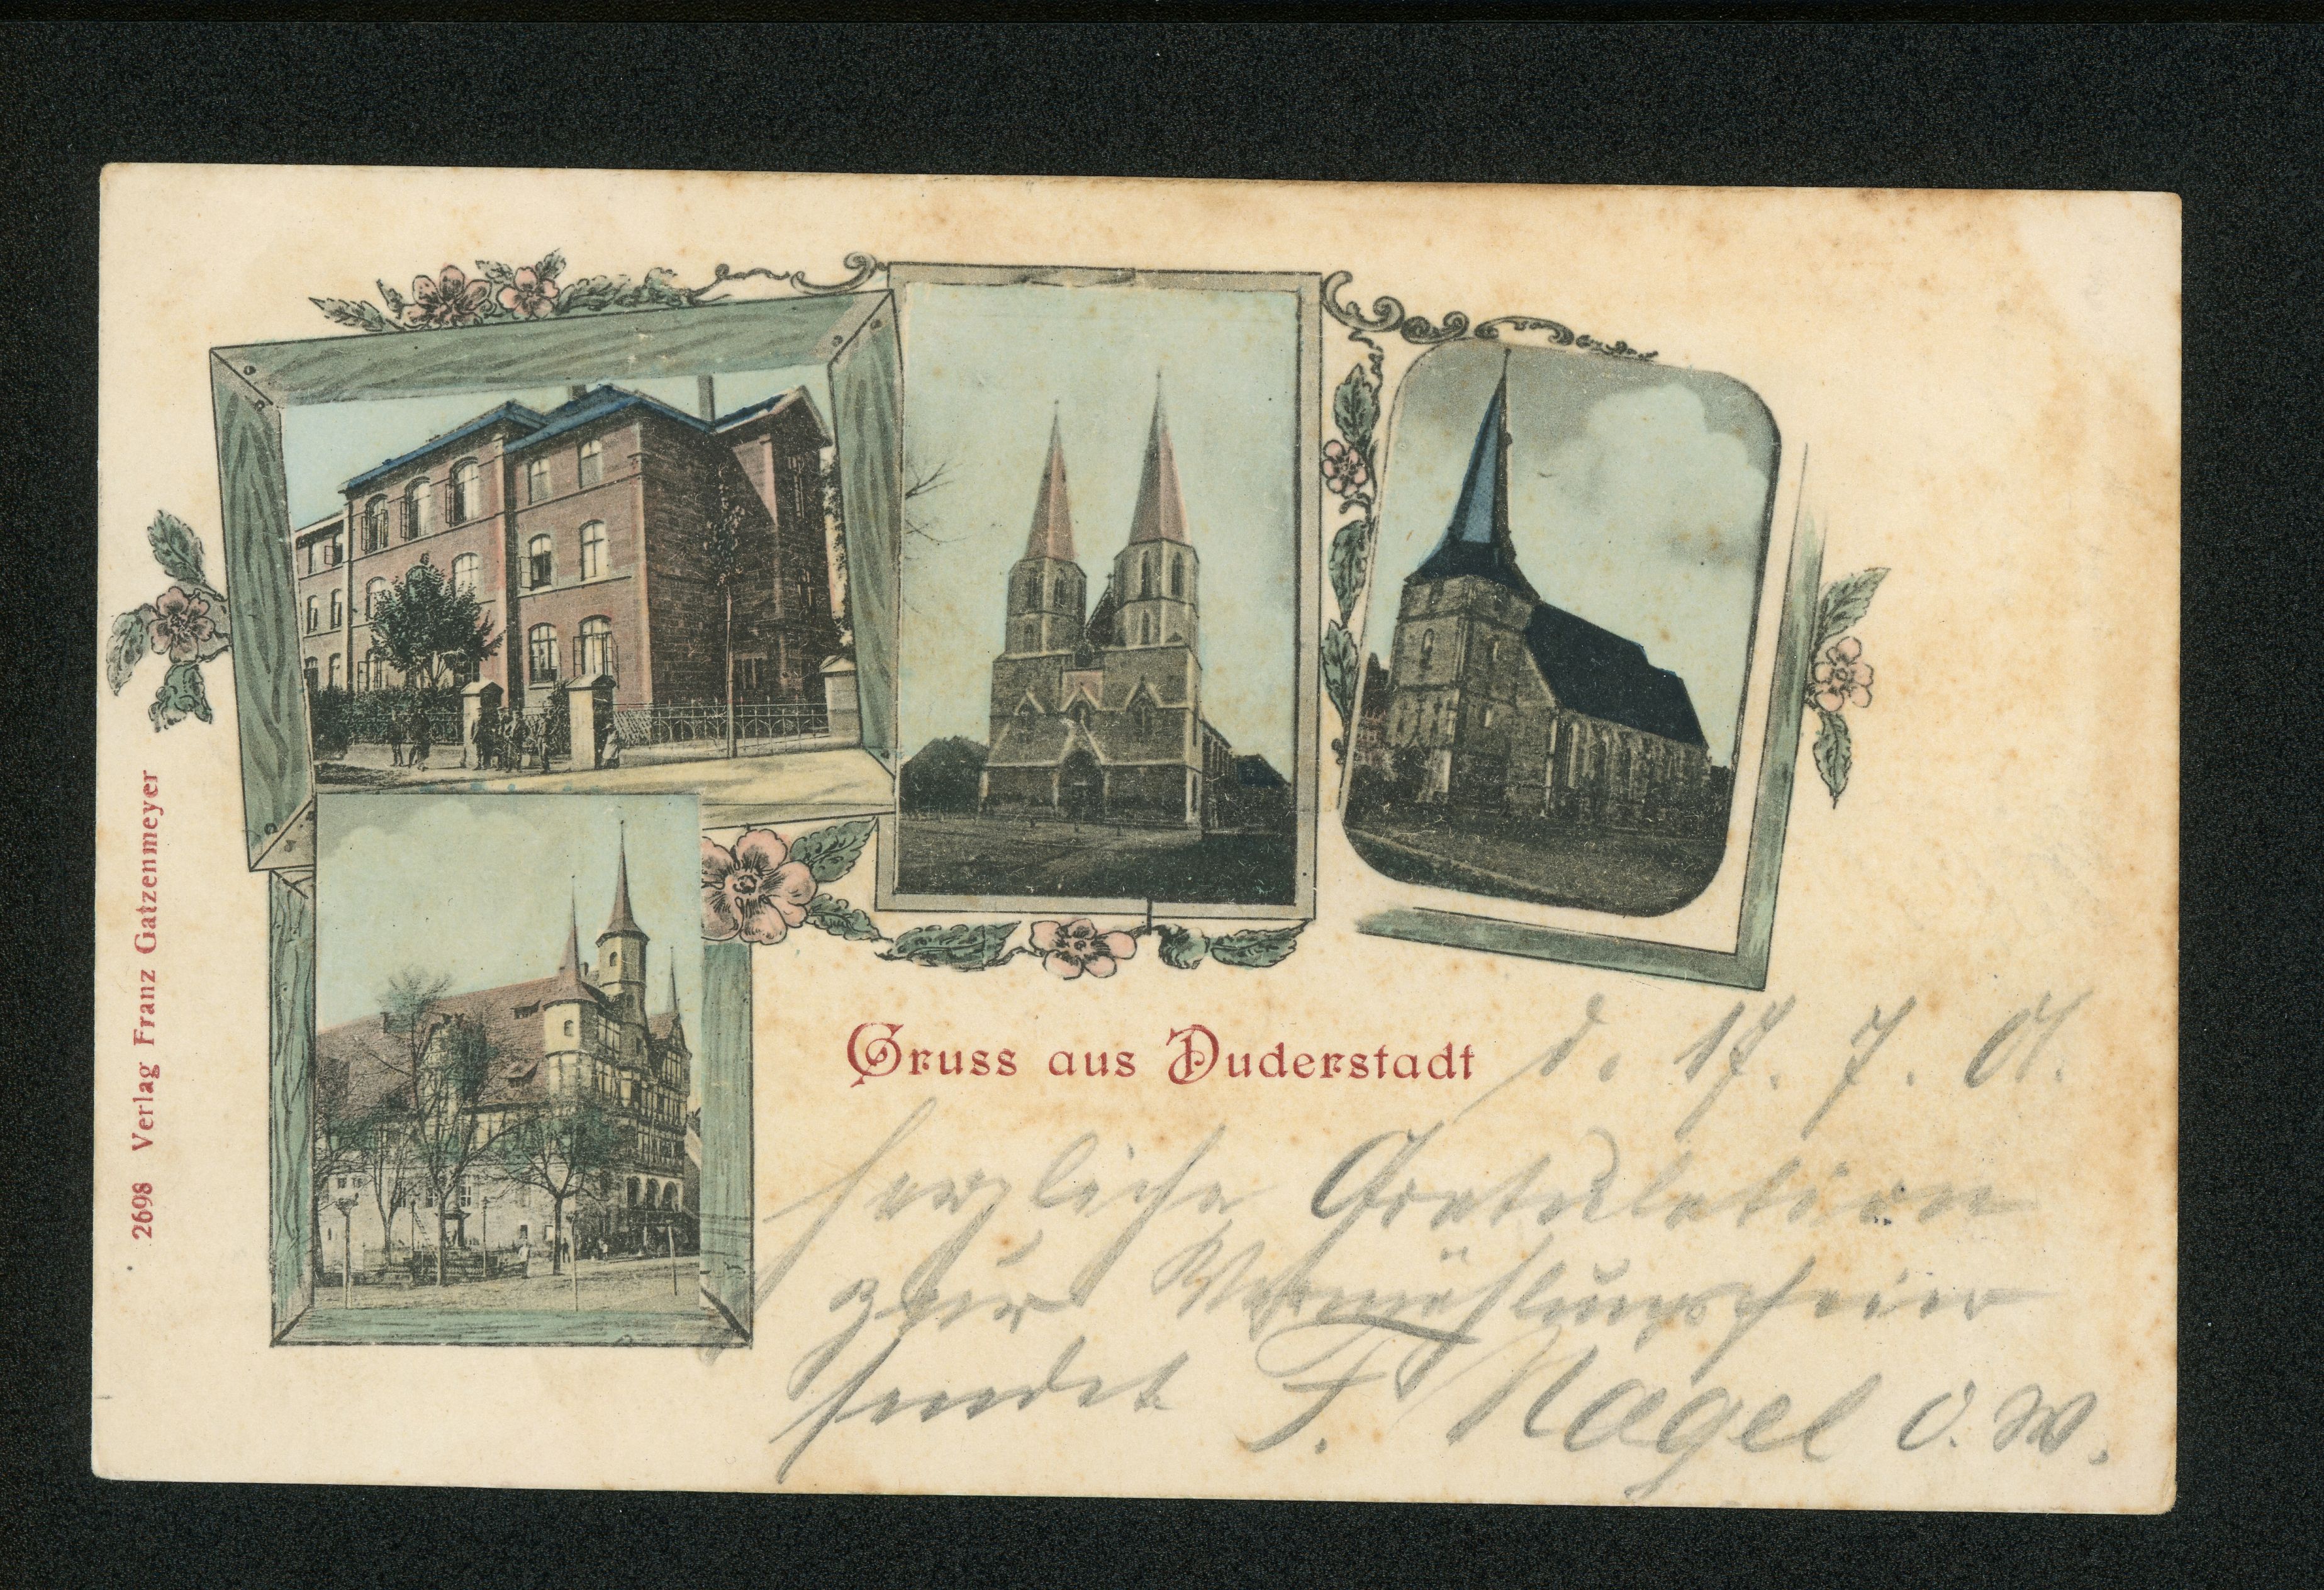 2698 Verlag Franz Gatzenmeyer
Gruss aus Duderstadt
d. 17. 7. 01.
herzliche Gratulation
zur Vermählungsfeier
sendet F. Nagel o. W.